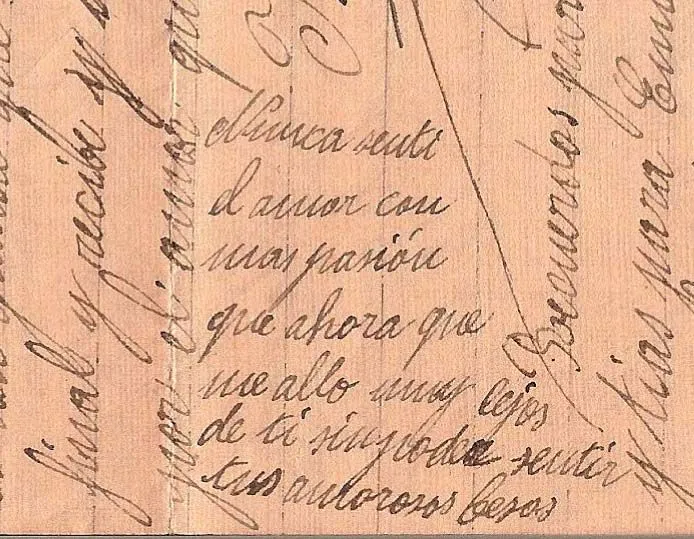 Nunca senti
el amor con
mas pasión
que ahora que
me allo muy lejos
de ti sin poder sentir
tus amorosos besos
final y recibe
por el amor
Recuerdos para
y tias para